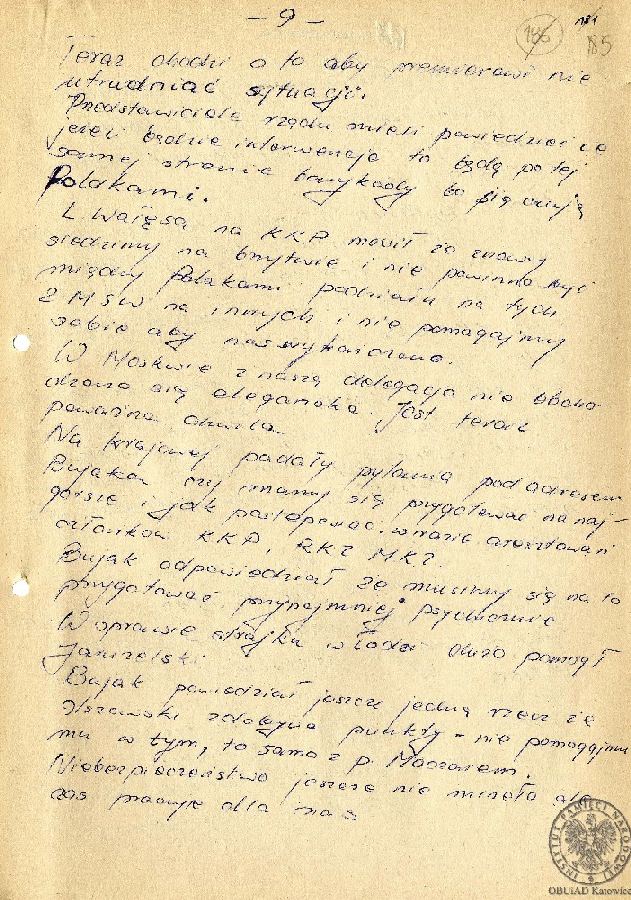 - 9 -
186
184
185
Teraz chodzi o to aby premierowi nie
utrudniać sytuacji.
Przedstawiciele rządu mieli powiedzieć że
jeżeli będzie interwencja to będą po tej
samej stronie barykady bo się czują
Polakami.
L. Wałęsa na KKP mówił że znowu
siedzimy na brzytwie i nie powinno być
między Polakami podziału na tych
z MSW na innych i nie pomagajmy
sobie aby nas wykończono.
W Moskwie z naszą delegacją nie obcho-
dzono się elegancko. Jest teraz
poważna chwila.
Na krajowej padały pytania pod adresem
Bujaka czy mamy się przygotować na naj-
gorsze i jak postępować w razie aresztowań
członków KKP, RKZ MKZ.
Bujak odpowiedział że musimy się na to
przygotować przynajmniej psychicznie
W sprawie strajku w Łodzi dużo pomógł
Jaruzelski.
Bujak powiedział jeszcze jedną rzecz że
Olszowski zdobywa punkty - nie pomagajmy
mu w tym, to samo z p. Moczarem.
Niebezpieczeństwo jeszcze nie minęło ale
czas pracuje dla nas
INSTYTUT PAMIĘCI NARODOWEJ
OBUiAD Katowice